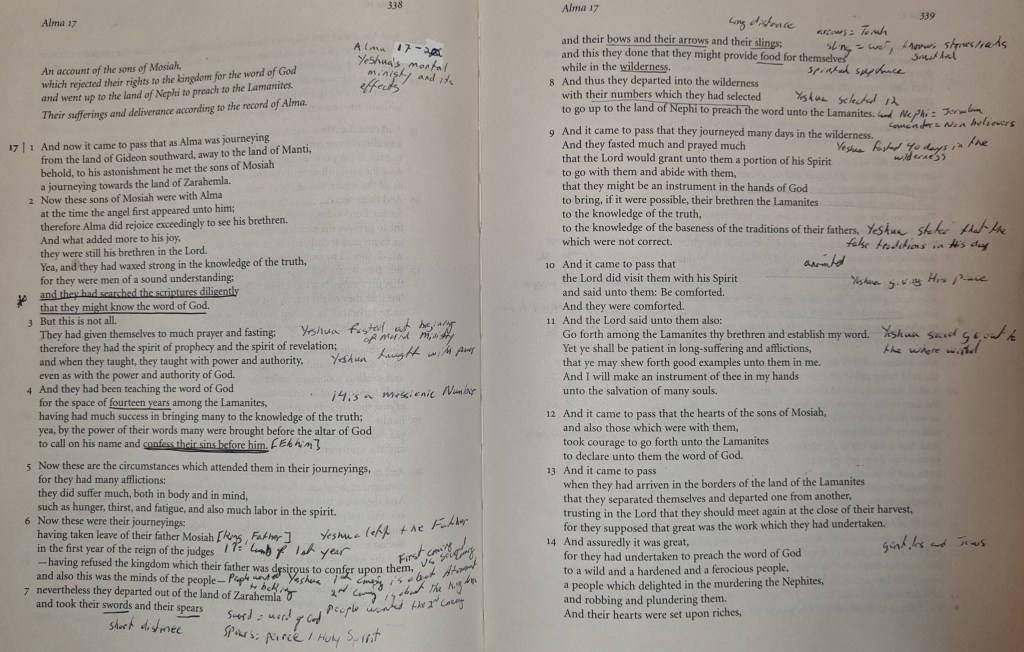 338
Alma 17
Alma 17-20
Yeshua's mortal
ministry and its
effects
An account of the sons of Mosiah,
which rejected their rights to the kingdom for the word of God
and went up to the land of Nephi to preach to the Lamanites.
Their sufferings and deliverance according to the record of Alma.
17 | 1 And now it came to pass that as Alma was journeying
from the land of Gideon southward, away to the land of Manti,
behold, to his astonishment he met the sons of Mosiah
a journeying towards the land of Zarahemla.
2 Now these sons of Mosiah were with Alma
at the time the angel first appeared unto him;
therefore Alma did rejoice exceedingly to see his brethren.
And what added more to his joy,
they were still his brethren in the Lord.
Yea, and they had waxed strong in the knowledge of the truth,
for they were men of a sound understanding;
and they had searched the scriptures diligently
that they might know the word of God.
3 But this is not all.
They had given themselves to much prayer and fasting; Yeshua fasted at
therefore they had the spirit of prophecy and the spirit of revelation; ministry
and when they taught, they taught with power and authority, Yeshua taught with power
even as with the power and authority of God.
4 And they had been teaching the word of God
for the space of fourteen years among the Lamanites, 14 is a messionic Number
having had much success in bringing many to the knowledge of the truth;
yea, by the power of their words many were brought before the altar of God
to call on his name and confess their sins before him.
5 Now these are the circumstances which attended them in their journeyings,
for they had many afflictions:
they did suffer much, both in body and in mind,
such as hunger, thirst, and fatigue, and also much labor in the spirit.
6 Now these were their journeyings:
having taken leave of their father Mosiah [King, Father] Yeshua left the Father
in the first year of the reign of the judges year
—having refused the kingdom which their father was desirous to confer upon them, First coming vs second
and also this was the minds of the people— People wanted Yeshua 1st coming is about Atonement
7 nevertheless they departed out of the land of Zarahemla 2nd coming is about the Kingdom
and took their swords and their spears People wanted the 2nd coming
sword = word of God
short distance
spears: pierce / Holy Spirit
Alma 17
339
long distance
arrows = Torah
and their bows and their arrows and their slings;
and this they done that they might provide food for themselves
while in the wilderness.
8 And thus they departed into the wilderness
with their numbers which they had selected Yeshua selected 12
to go up to the land of Nephi to preach the word unto the Lamanites. Land Nephi =
Non believers
9 And it came to pass that they journeyed many days in the wilderness.
And they fasted much and prayed much Yeshua fasted 40 days in the
that the Lord would grant unto them a portion of his Spirit wilderness
to go with them and abide with them,
that they might be an instrument in the hands of God
to bring, if it were possible, their brethren the Lamanites
to the knowledge of the truth,
to the knowledge of the baseness of the traditions of their fathers, Yeshua states that the
which were not correct. false traditions in His day
10 And it came to pass that anointed
the Lord did visit them with his Spirit Yeshua giving His
and said unto them: Be comforted.
And they were comforted.
11 And the Lord said unto them also:
Go forth among the Lamanites thy brethren and establish my word. Yeshua said go out to
Yet ye shall be patient in long-suffering and afflictions, the whole world
that ye may shew forth good examples unto them in me.
And I will make an instrument of thee in my hands
unto the salvation of many souls.
12 And it came to pass that the hearts of the sons of Mosiah,
and also those which were with them,
took courage to go forth unto the Lamanites
to declare unto them the word of God.
13 And it came to pass
when they had arriven in the borders of the land of the Lamanites
that they separated themselves and departed one from another,
trusting in the Lord that they should meet again at the close of their harvest,
for they supposed that great was the work which they had undertaken.
14 And assuredly it was great,
for they had undertaken to preach the word of God
to a wild and a hardened and a ferocious people,
a people which delighted in the murdering the Nephites,
and robbing and plundering them.
And their hearts were set upon riches,